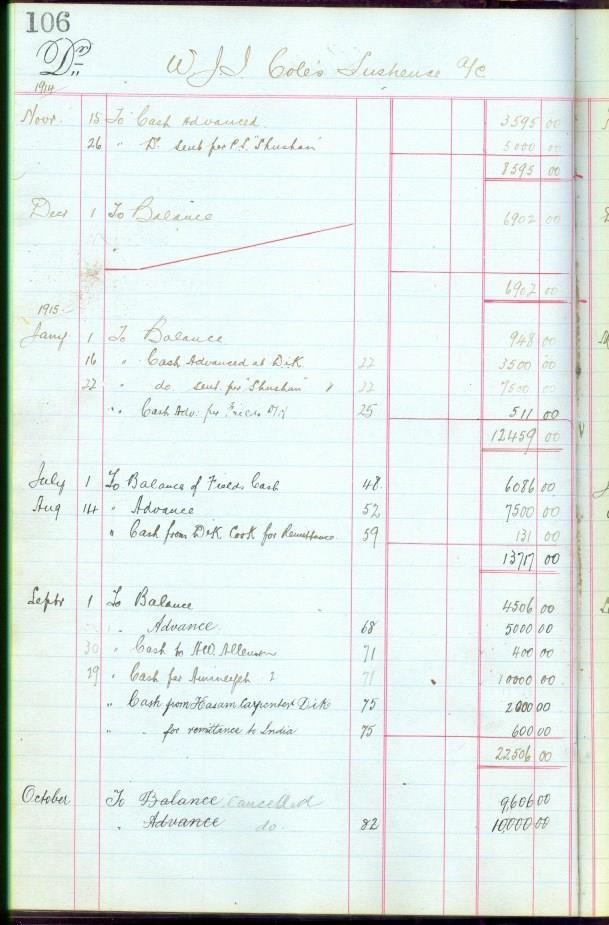 106
Dr
W J I Cole's Suspense a/c
1914
Novr. 15 To Cash Advanced 3595 00
26 " Do sent per P.S. "Shushan" 5000 00
8595 00
Decr 1 To Balance 6902 00
"
6902 00
1915
Jany 1 To Balance 948 00
16 " Cash Advanced at D.K 22 3500 00
22 " do sent per "Shushan" 22 7500 00
" Cash Adv. per 25 511 00
12459 00
July 1 To Balance of Fields Cash 48 6086 00
Aug 14 " Advance 52 7500 00
" Cash from D.K. Cook for Remittance 59 131 00
13717 00
Septr 1 To Balance 4506 00
" Advance 68 5000 00
30 " Cash to 71 400 00
29 " Cash per 71 10000 00
" Cash from Hasam Carpenter D.K 75 2000 00
" " for remittance to India 75 600 00
22506 00
October To Balance cancelled 9606 00
" Advance do. 82 10000 00